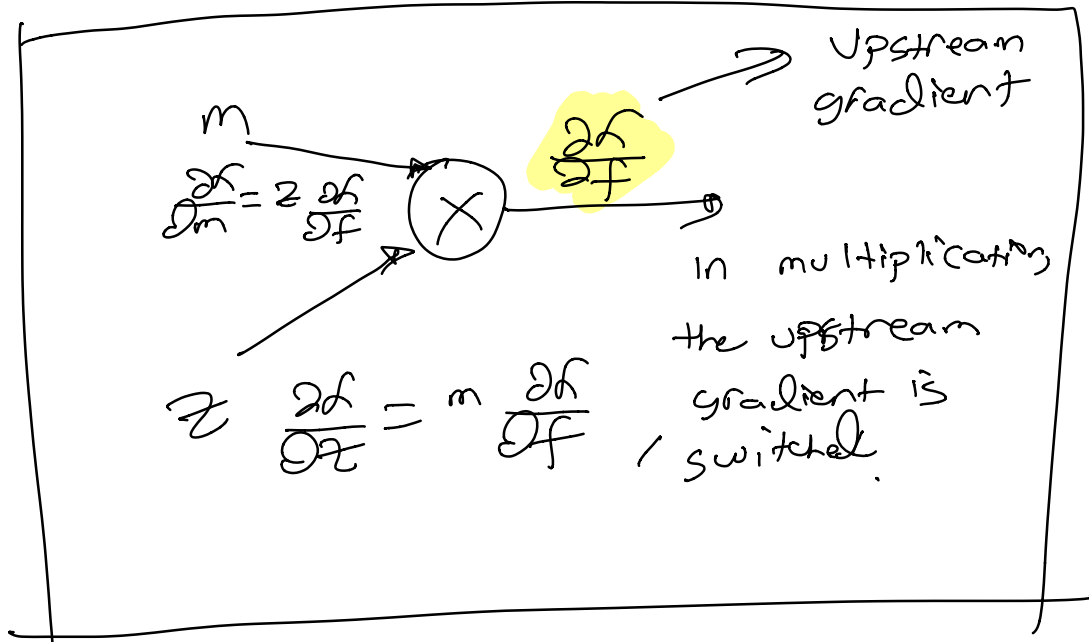 Upstream
gradient
m
∂L/∂m = z ∂L/∂f
×
∂L/∂f
z ∂L/∂z = m ∂L/∂f
in multiplication,
the upstream
gradient is
switched.